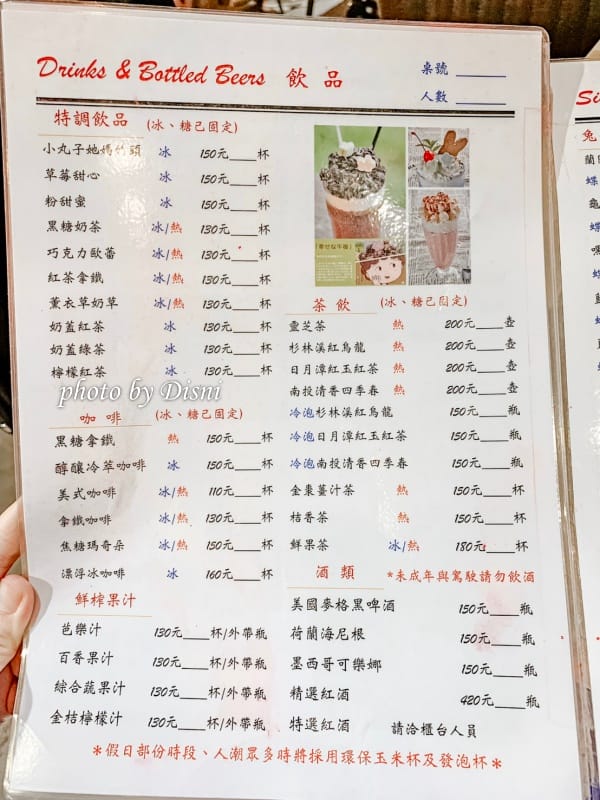 Drinks & Bottled Beers 飲品
桌號
人數
特調飲品 (冰、糖己固定)
小丸子她媽竹頭 冰 150元____杯
草莓甜心 冰 150元____杯
粉甜蜜 冰 150元____杯
黑糖奶茶 冰/熱 130元____杯
巧克力歐蕾 冰/熱 130元____杯
紅茶拿鐵 冰/熱 130元____杯
薰衣草奶草 冰/熱 130元____杯
奶蓋紅茶 冰 130元____杯
奶蓋綠茶 冰 130元____杯
檸檬紅茶 冰 130元____杯
photo by Disni
咖啡 (冰、糖己固定)
黑糖拿鐵 熱 150元____杯
醇釀冷萃咖啡 冰 150元____杯
美式咖啡 冰/熱 110元____杯
拿鐵咖啡 冰/熱 130元____杯
焦糖瑪奇朵 冰/熱 150元____杯
漂浮冰咖啡 冰 160元____杯
鮮榨果汁
芭樂汁 130元____杯/外帶瓶
百香果汁 130元____杯/外帶瓶
綜合蔬果汁 130元____杯/外帶瓶
金桔檸檬汁 130元____杯/外帶瓶
茶飲 (冰、糖己固定)
靈芝茶 熱 200元____壺
杉林溪紅烏龍 熱 200元____壺
日月潭紅玉紅茶 熱 200元____壺
南投清香四季春 熱 200元____壺
冷泡杉林溪紅烏龍 150元____瓶
冷泡日月潭紅玉紅茶 150元____瓶
冷泡南投清香四季春 150元____瓶
金棗薑汁茶 熱 150元____杯
桔香茶 熱 150元____杯
鮮果茶 冰/熱 180元____杯
酒類 *未成年與駕駛請勿飲酒
美國麥格黑啤酒 150元____瓶
荷蘭海尼根 150元____瓶
墨西哥可樂娜 150元____瓶
精選紅酒 420元____瓶
特選紅酒 請洽櫃台人員
*假日部份時段、人潮眾多時將採用環保玉米杯及發泡杯*
Si